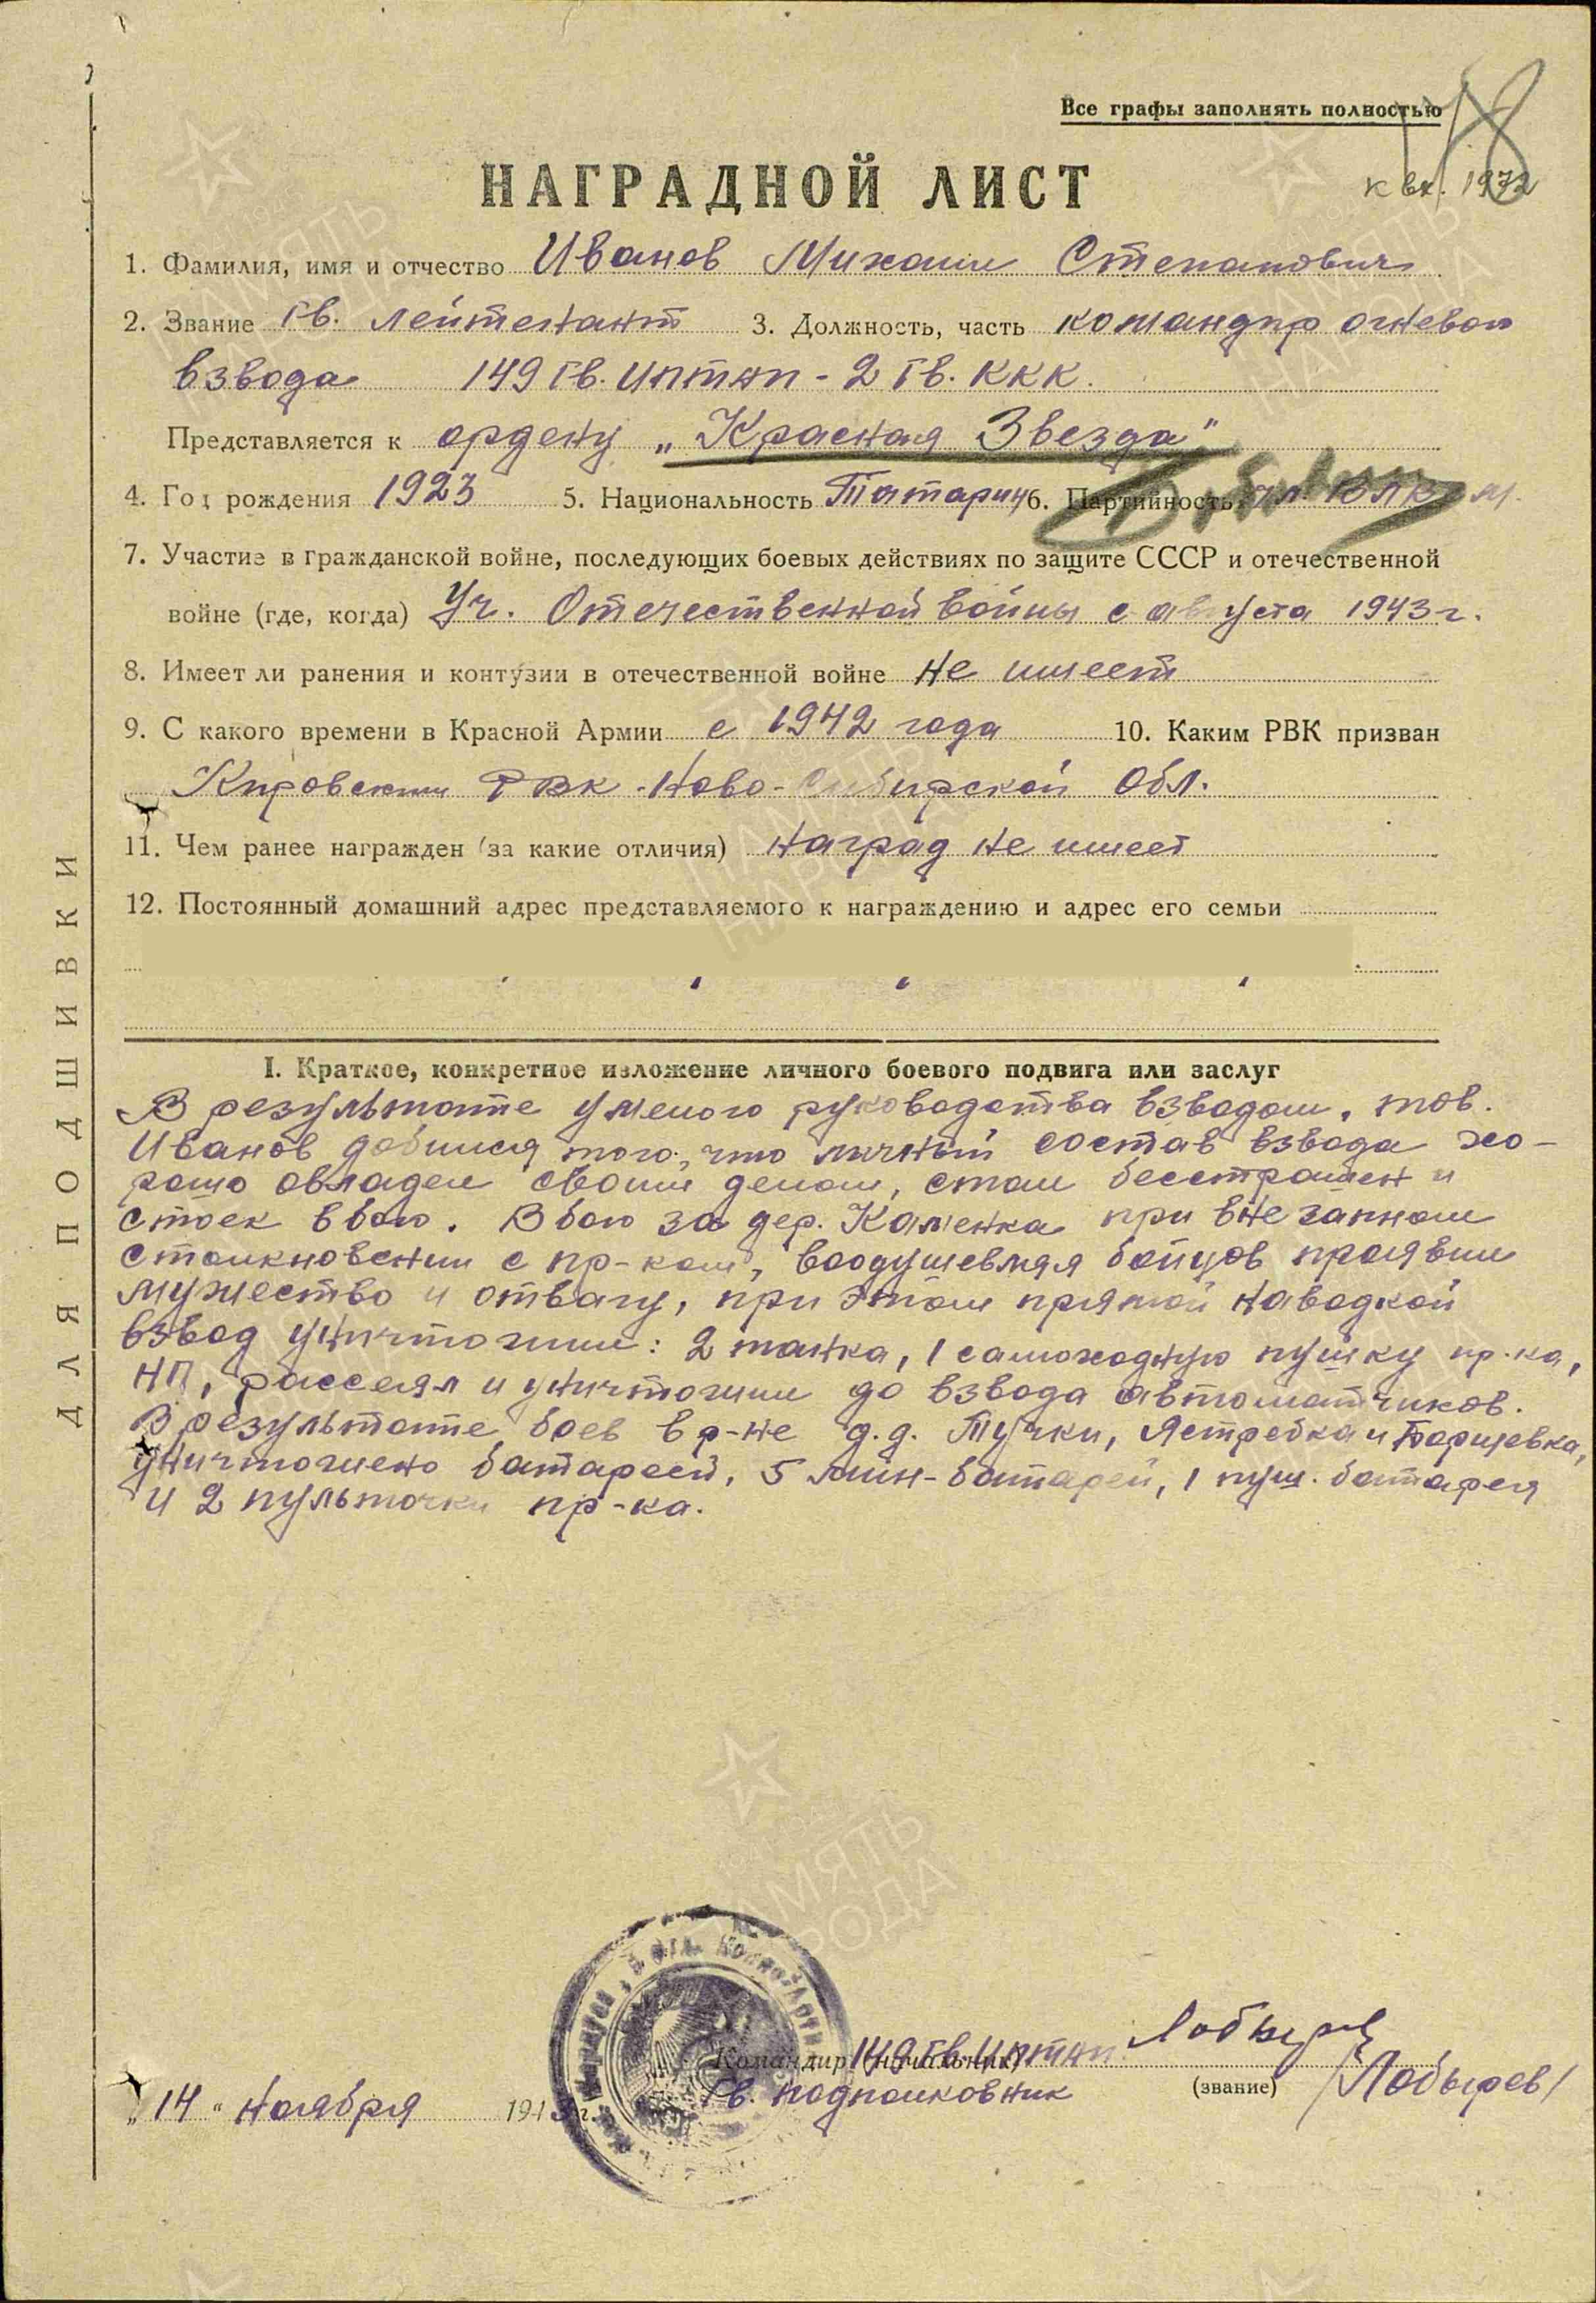 Все графы заполнять полностью
к вх. 1972
НАГРАДНОЙ ЛИСТ
1. Фамилия, имя и отчество Иванов Михаил Степанович
2. Звание гв. лейтенант 3. Должность, часть командир огневого
взвода 149 гв. иптап - 2 гв. ККК.
Представляется к ордену „Красная Звезда"
4. Год рождения 1923 5. Национальность Татарин 6. Партийность чл. ВЛКСМ.
7. Участие в гражданской войне, последующих боевых действиях по защите СССР и отечественной
войне (где, когда) Уч. Отечественной войны с августа 1943 г.
8. Имеет ли ранения и контузии в отечественной войне не имеет
9. С какого времени в Красной Армии с 1942 года 10. Каким РВК призван
Кировским РВК - Ново-Сибирской Обл.
11. Чем ранее награжден (за какие отличия) наград не имеет
12. Постоянный домашний адрес представляемого к награждению и адрес его семьи
I. Краткое, конкретное изложение личного боевого подвига или заслуг
В результате умелого руководства взводом, тов.
Иванов добился того, что личный состав взвода хо-
рошо овладел своим делом, стал бесстрашен и
стоек в бою. В бою за дер. Каменка при внезапном
столкновении с пр-ком, воодушевляя бойцов проявил
мужество и отвагу, при этом прямой наводкой
взвод уничтожил: 2 танка, 1 самоходную пушку пр-ка,
НП, рассеял и уничтожил до взвода автоматчиков.
В результате боев в р-не д.д. Тучки, Ястребка и Борщевка,
уничтожено батареей, 5 мин-батарей, 1 пуш. батарея
и 2 пульточки пр-ка.
Командир (начальник) 149 гв. иптап Лобырев
„14" ноября 1943 г. гв. подполковник (звание) /Лобырев/
ДЛЯ ПОДШИВКИ
ПАМЯТЬ
НАРОДА